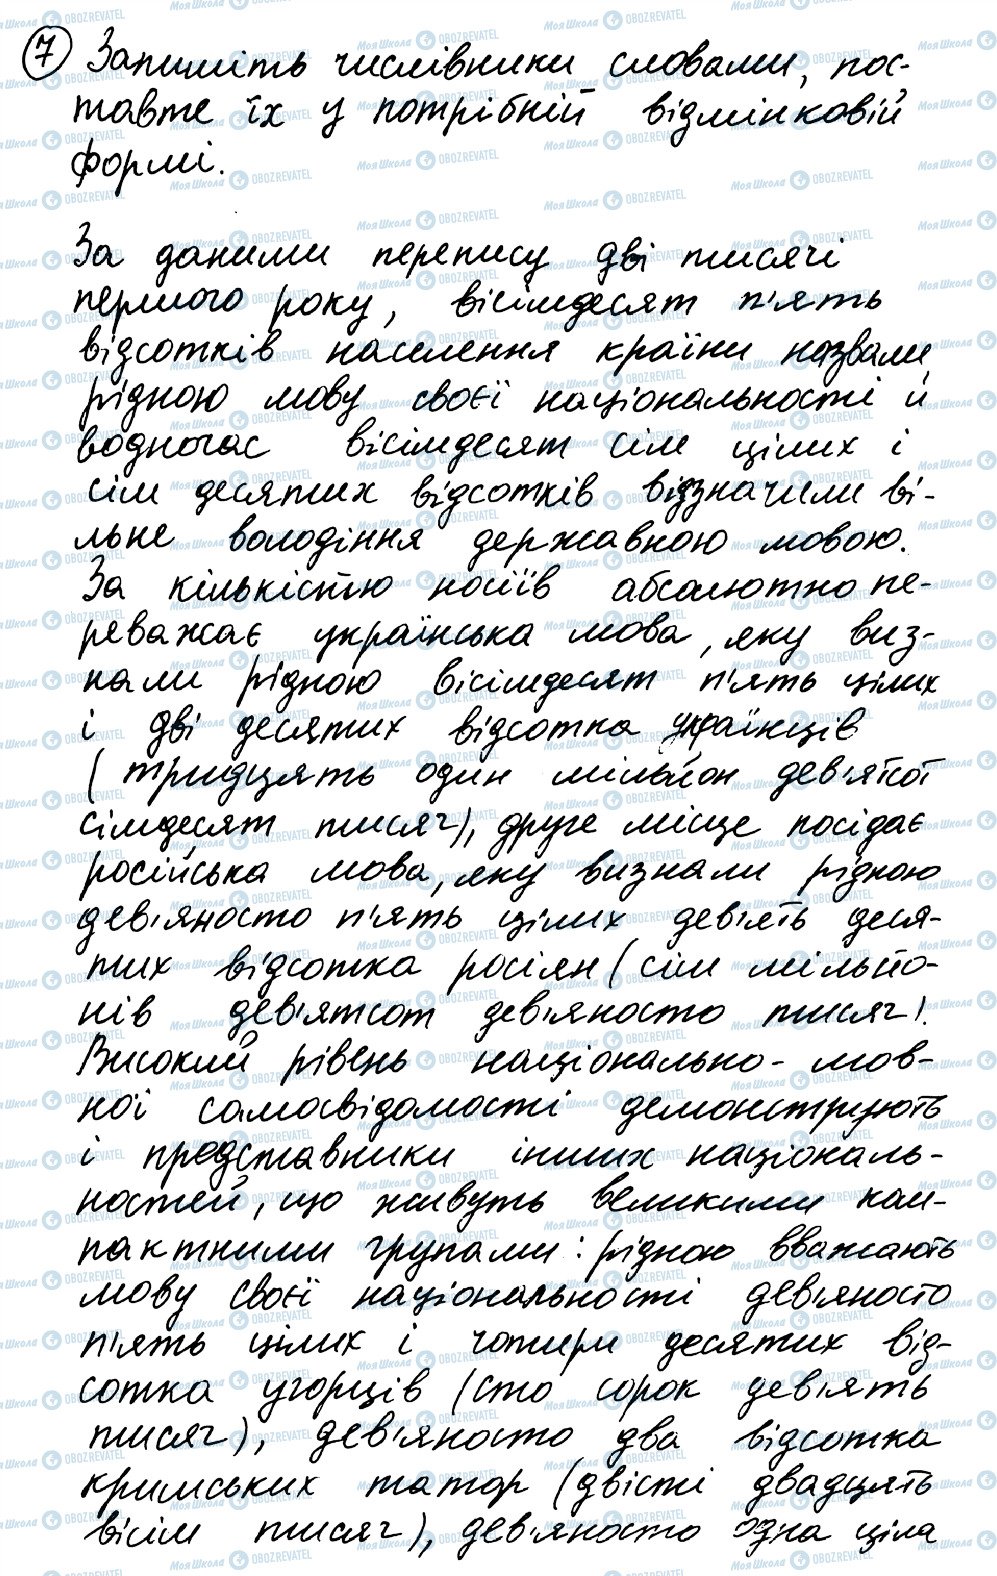 7 Запишіть числівники словами, пос-
тавте їх у потрібній відмінковій
формі.
За даними перепису дві тисячі
першого року, вісімдесят п'ять
відсотків населення країни назвали
рідною мову своєї національності й
водночас вісімдесят сім цілих і
сім десятих відсотків відзначили ві-
льне володіння державною мовою.
За кількістю носіїв абсолютно пе-
реважає українська мова, яку виз-
нали рідною вісімдесят п'ять цілих
і дві десятих відсотка українців
(тридцять один мільйон дев'ятсот
сімдесят тисяч), друге місце посідає
російська мова, яку визнали рідною
дев'яносто п'ять цілих дев'ять деся-
тих відсотка росіян (сім мільйо-
нів дев'ятсот дев'яносто тисяч).
Високий рівень національно-мов-
ної самосвідомості демонструють
і представники інших національ-
ностей, що живуть великими ком-
пактними групами: рідною вважають
мову своєї національності дев'яносто
п'ять цілих і чотири десятих від-
сотка угорців (сто сорок дев'ять
тисяч), дев'яносто два відсотка
кримських татар (двісті двадцять
вісім тисяч), дев'яносто одна ціла